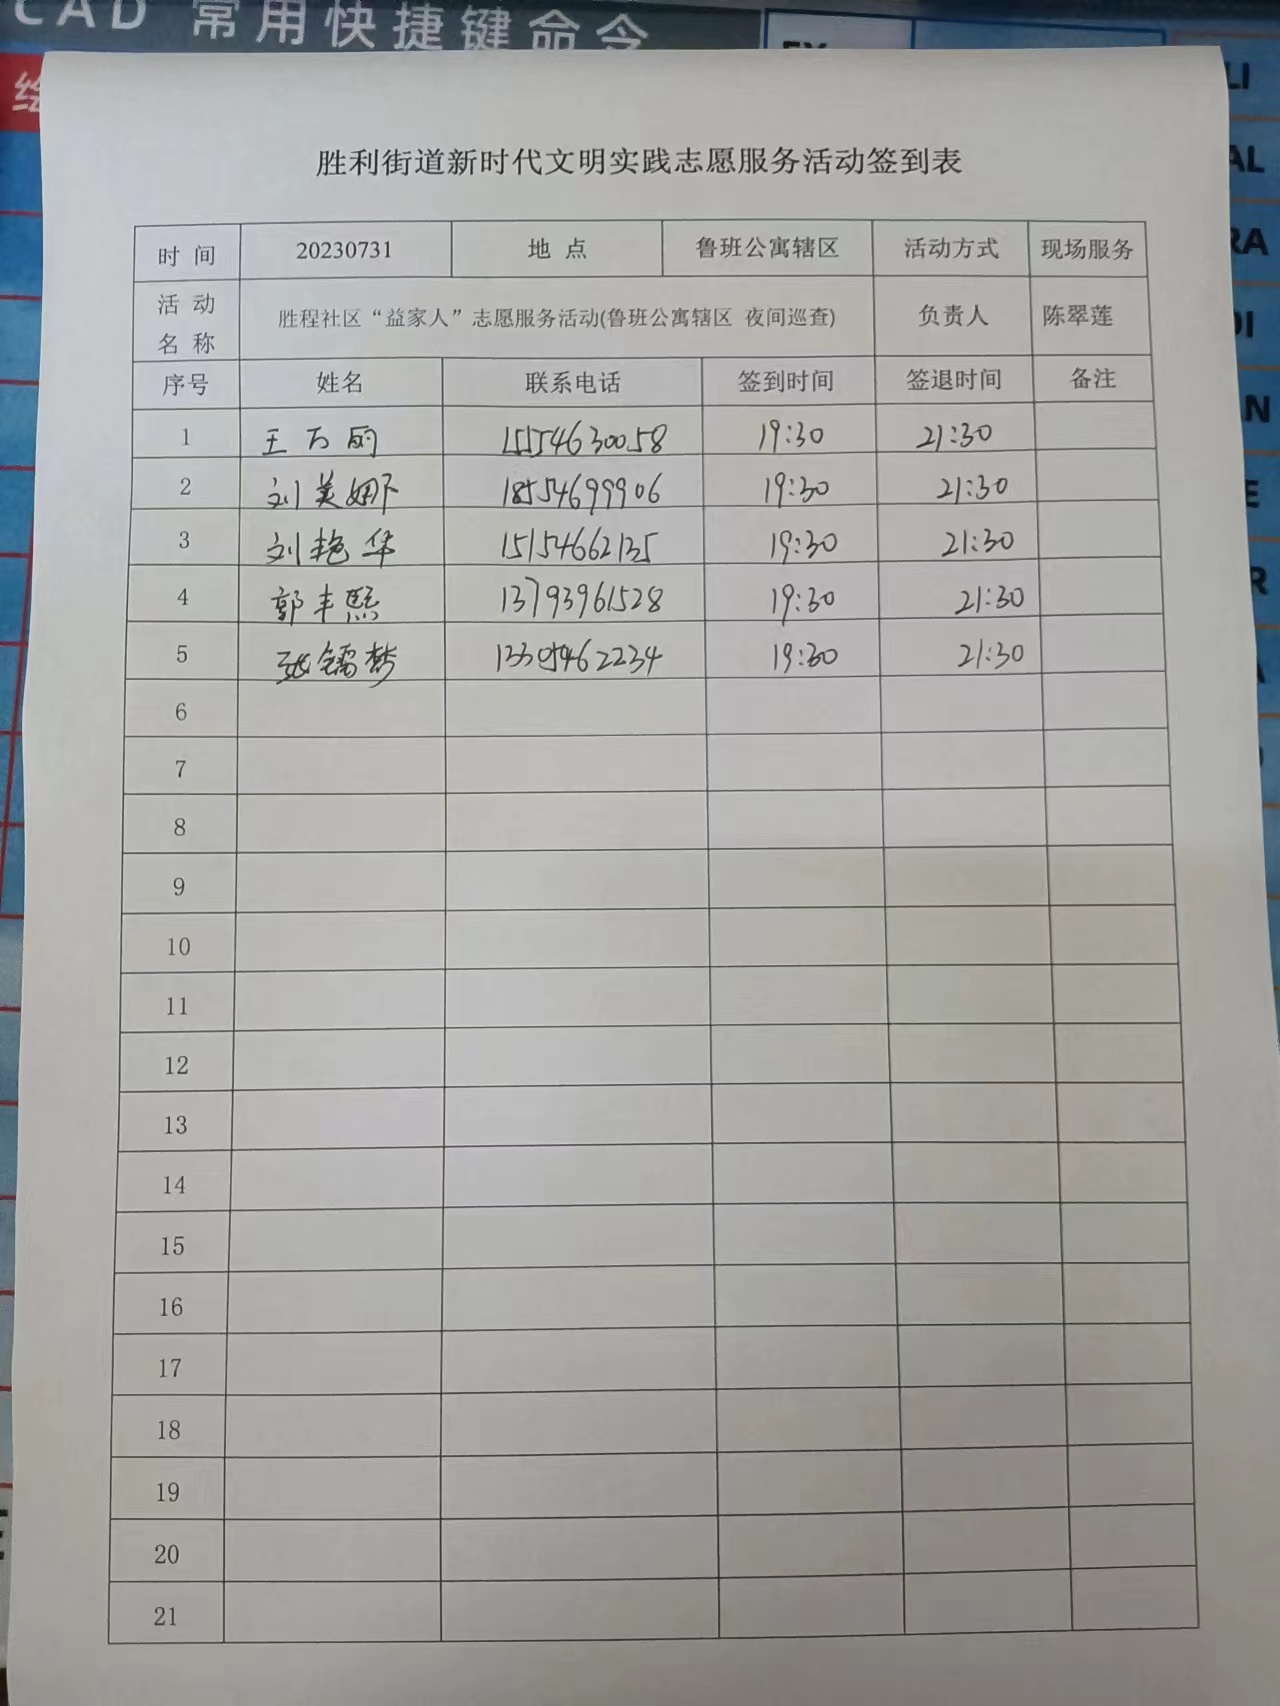 CAD 常用快捷键命令
胜利街道新时代文明实践志愿服务活动签到表
时 间 20230731 地 点 鲁班公寓辖区 活动方式 现场服务
活 动 名 称 胜程社区“益家人”志愿服务活动(鲁班公寓辖区 夜间巡查) 负责人 陈翠莲
序号 姓名 联系电话 签到时间 签退时间 备注
1 王万丽 15554630058 19:30 21:30
2 刘美娜 18554699906 19:30 21:30
3 刘艳华 15154662135 19:30 21:30
4 郭丰熙 13793961528 19:30 21:30
5 张 梦 19:30 21:30
6
7
8
9
10
11
12
13
14
15
16
17
18
19
20
21